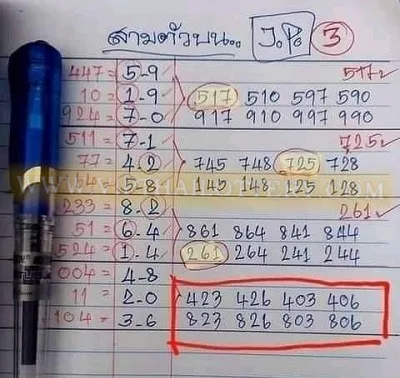 สามตัวบน.. J.P. 3
447 = 5-9 517✓
10 = 1-9 517 510 597 590
924 = 7-0 917 910 997 990
511 = 7-1 725✓
77 = 4-2 745 748 725 728
5-8 145 148 125 128
233 = 8-2 261✓
51 = 6-4 861 864 841 844
524 = 1-4 261 264 241 244
004 = 4-8
11 = 2-0 423 426 403 406
104 = 3-6 823 826 803 806